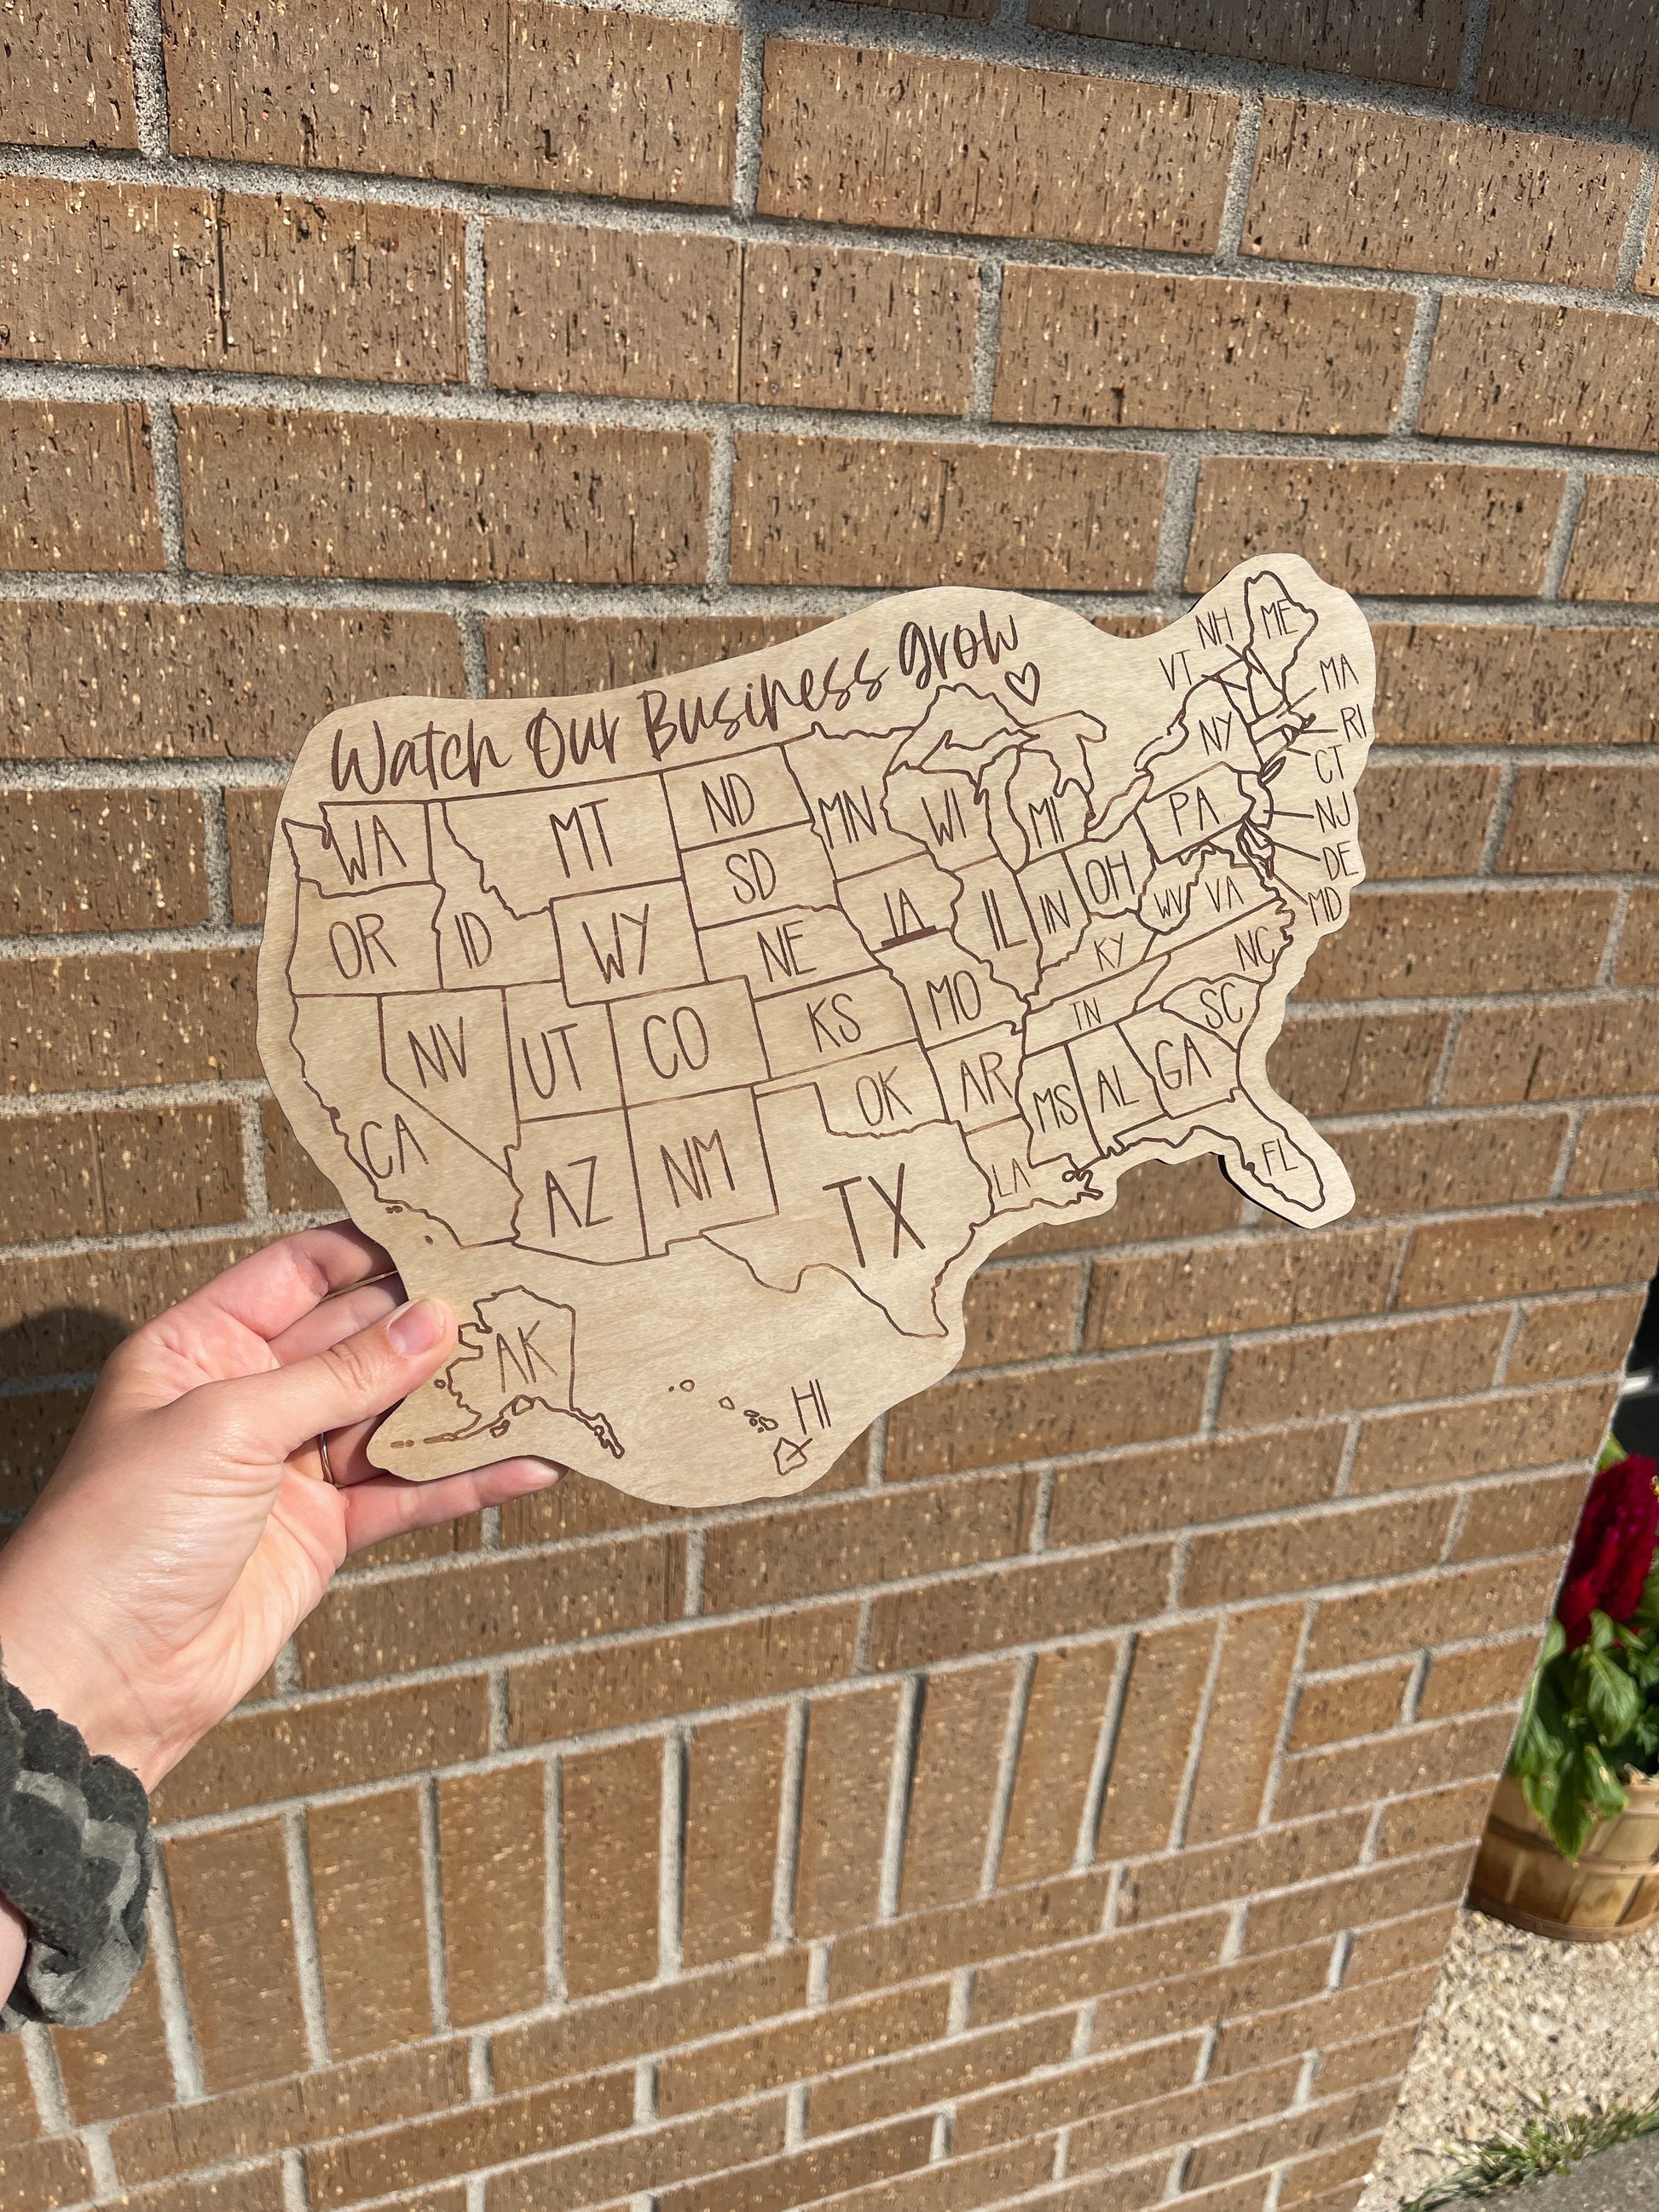 Watch Our Business grow
NH
ME
VT
MA
NY
RI
CT
WA
MT
ND
MN
WI
MI
PA
NJ
SD
DE
OR
ID
WY
NE
IA
IL
IN
OH
WV
VA
MD
KY
NC
NV
UT
CO
KS
MO
TN
SC
CA
AZ
NM
OK
AR
MS
AL
GA
TX
LA
FL
AK
HI